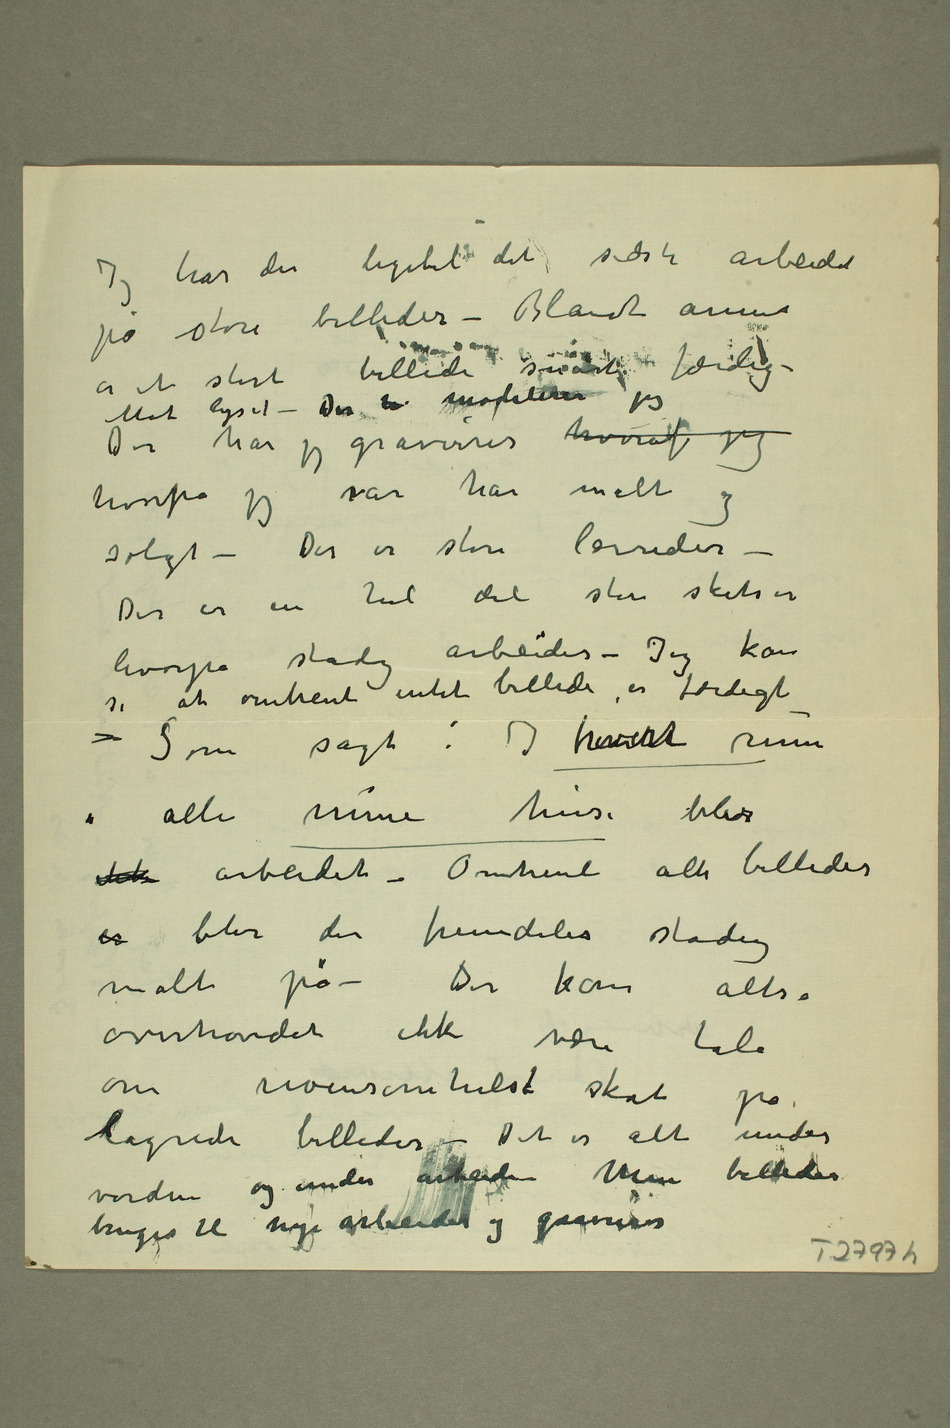 Jeg har der ligetil det sidste arbeidet
på store billeder – Blandt annet
er et stort billede snart færdig –
Mot lyset – Der modellerer jeg
Der har jeg graveures hvoraf jeg
hvorpå jeg har malt og
solgt – Der er store lærreder –
Der er en hel del store skitser
hvorpå stadig arbeides – Jeg kan
si at omtrent intet billede er færdigt
– Som sagt: I hvert rum
i alle mine huse blir
ikke arbeidet – Omtrent alle billeder
er blir der fremdeles stadig
malt på – Der kan altså
overhovedet ikke være tale
om nogensomhelst skat på
lagrede billeder – Det er alt under
vorden og under arbeide Mine billeder
bruges til nye arbeider og graveures
T2797h